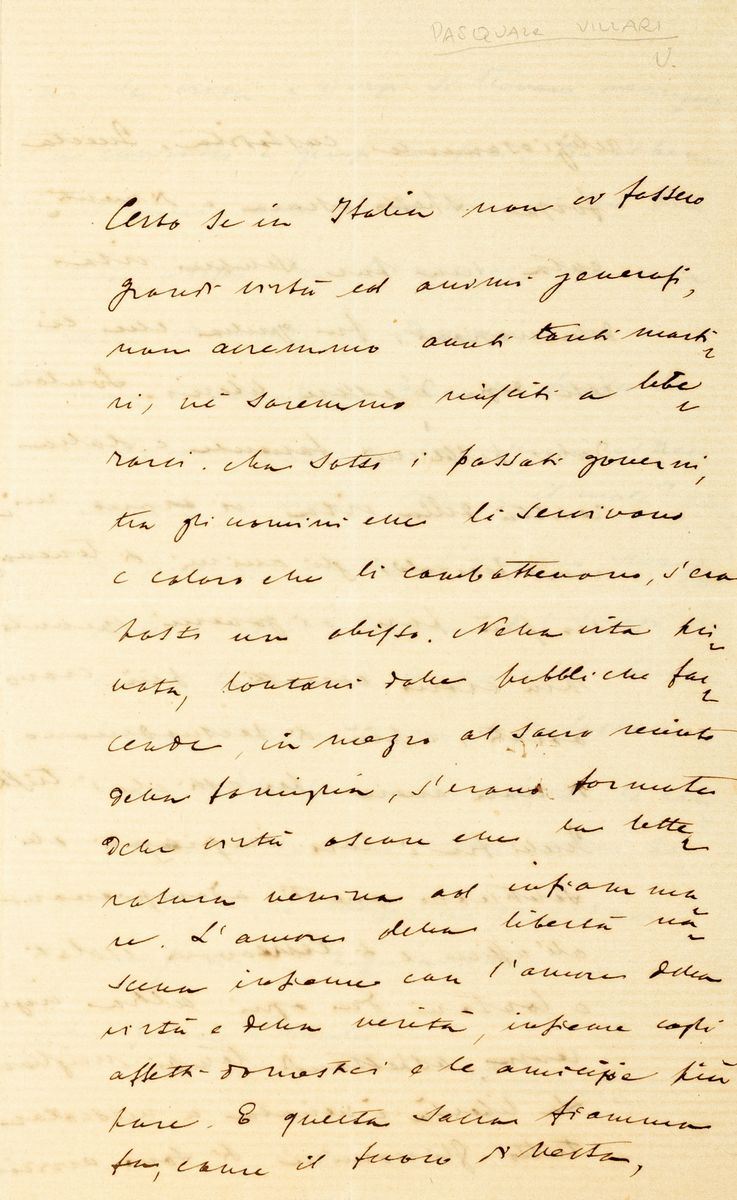 PASQUALE VILLARI
V.
Certo se in Italia non vi fossero
grandi virtù ed animi generosi,
non avremmo avuti tanti marti-
ri, nè saremmo riusciti a libe-
rarci. Ma sotto i passati governi,
tra gli uomini che li servivano
e coloro che li combattevano, s'era
posto un abisso. Nella vita pri-
vata, lontani dalle pubbliche fac-
cende, in mezzo al sacro recinto
della famiglia, s'erano formate
delle virtù oscure che la lette-
ratura veniva ad infiamma
re. L'amore della libertà na-
sceva insieme con l'amore della
virtù e della verità, insieme cogli
affetti domestici e le amicizie più
pure. E questa sacra fiamma
fu, come il fuoco di Vesta,